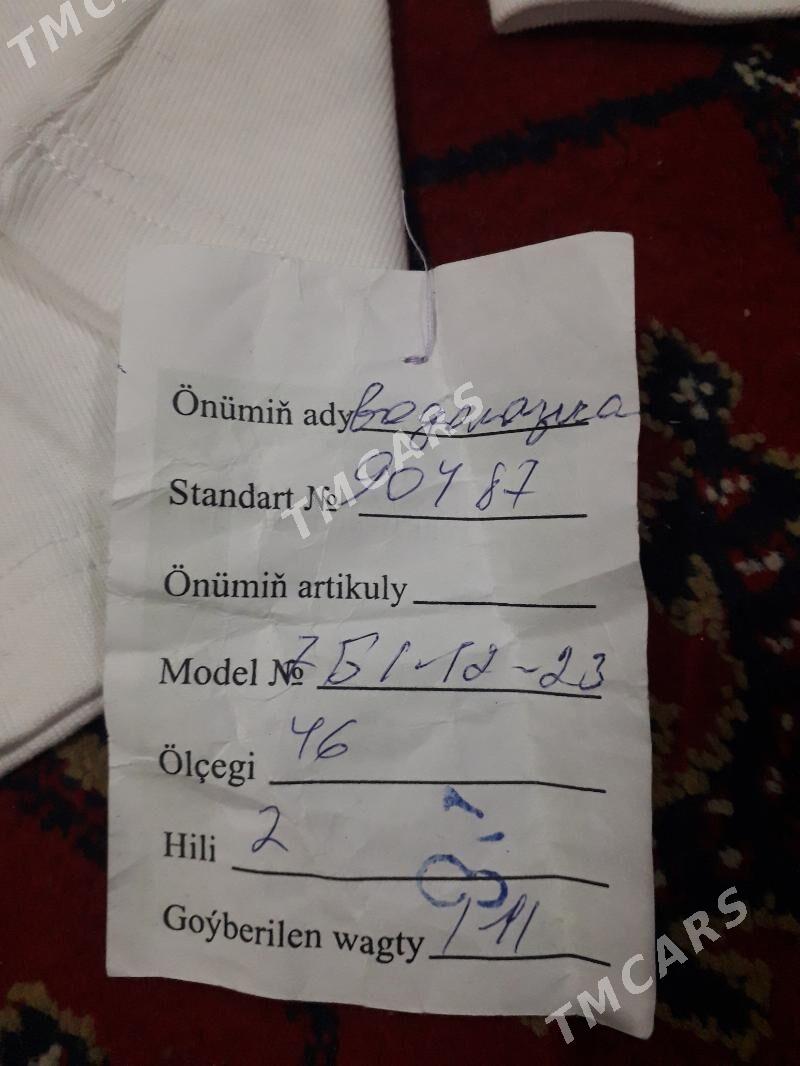 TMCARS
Önümiň ady водолазка
Standart № 90487
TMCARS
Önümiň artikuly
Model № 7Б1-12-23
Ölçegi 46
Hili 2
Goýberilen wagty
TMCARS